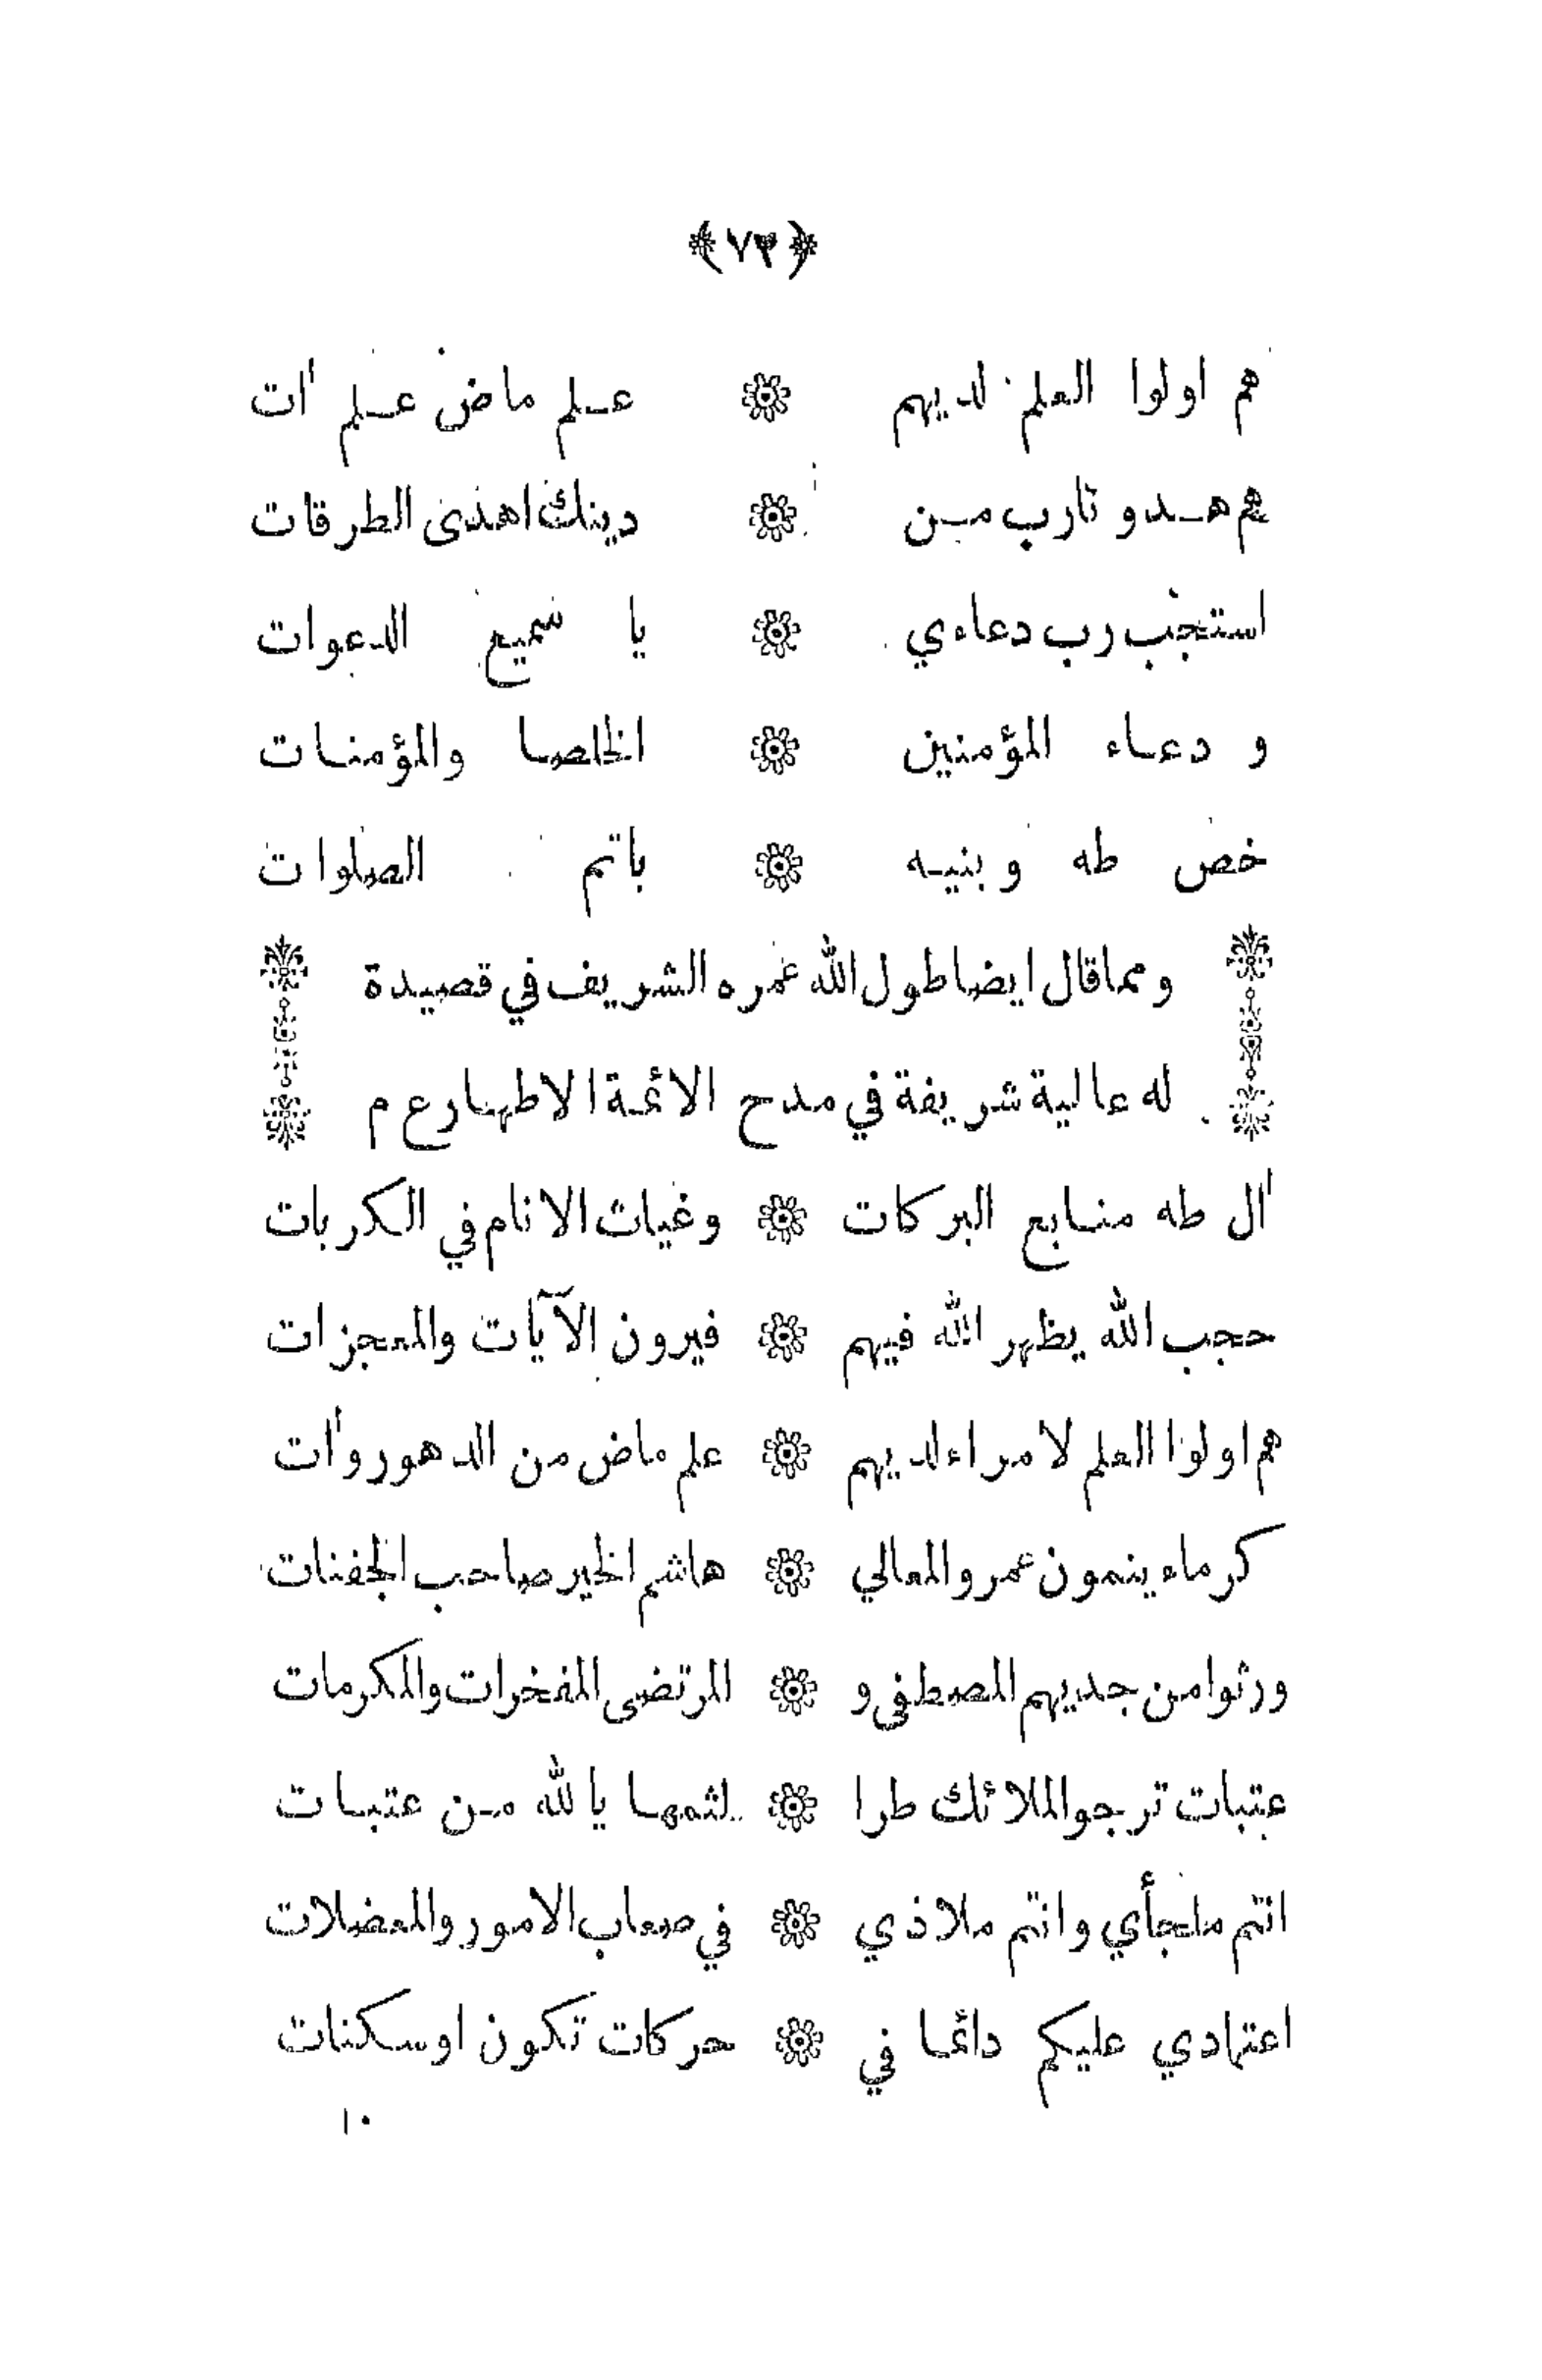 ﴿٧٣﴾
هم اولوا العلم لديهم ❊ علم ماض علم اٰت
هم هدونا رب من ❊ دينك اهدى الطرقات
استجب رب دعاءي ❊ يا سميع الدعوات
و دعاء المؤمنين ❊ الخلصا والمؤمنات
خص طه وبنيه ❊ باتم الصلوات
ومما قال ايضا طول الله عمره الشريف في قصيدة
له عالية شريفة في مدح الائمة الاطهار ع م
اٰل طه منابع البركات ❊ وغياث الانام في الكربات
حجب الله يظهر الله فيهم ❊ فيرون الآيات والمعجزات
هم اولوا العلم لا مراء لديهم ❊ علم ماض من الدهور واٰت
كرماء ينمون عمرو المعالي ❊ هاشم الخير صاحب الجفنات
ورثوا من جديهم المصطفى و ❊ المرتضى المفخرات والمكرمات
عتبات ترجو الملائك طرا ❊ لثمها يالله من عتبات
انتم ملجأي وانتم ملاذي ❊ في صعاب الامور والمعضلات
اعتمادي عليكم دائما في ❊ حركات تكون او سكنات
١٠